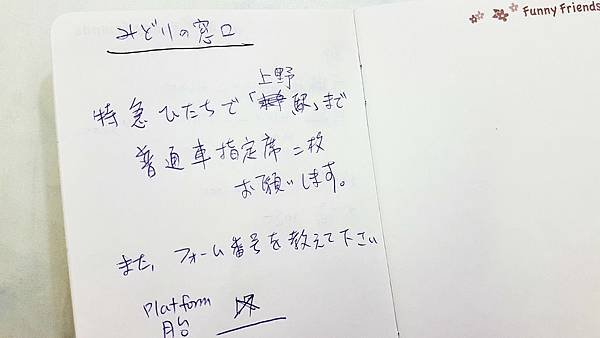 Funny Friends
みどりの窓口
特急ひたちで「上野駅」まで
普通車指定席二枚
お願いします。
また、フォーム番号を教えて下さい
Platform
月台